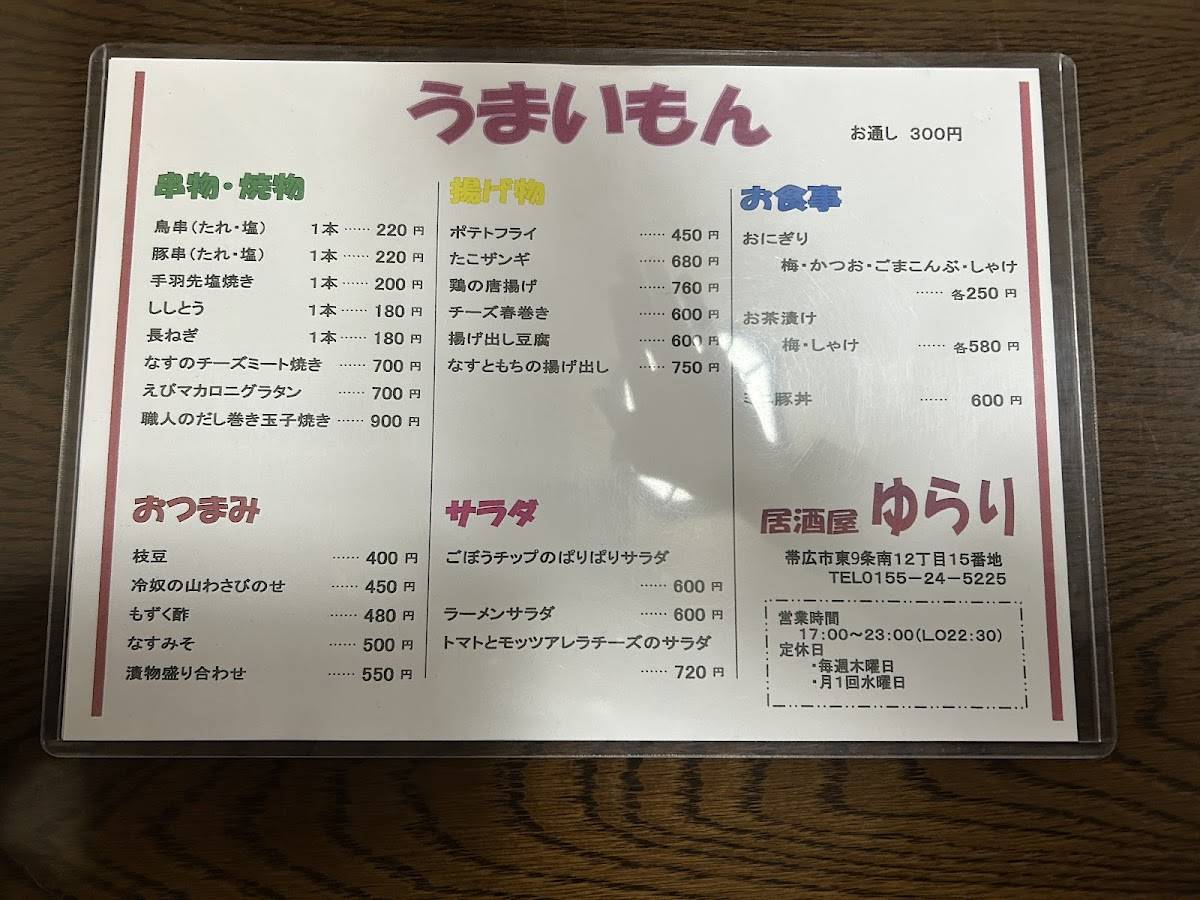 うまいもん
お通し 300円
串物・焼物
鳥串(たれ・塩) 1本 …… 220 円
豚串(たれ・塩) 1本 …… 220 円
手羽先塩焼き 1本 …… 200 円
ししとう 1本 …… 180 円
長ねぎ 1本 …… 180 円
なすのチーズミート焼き …… 700 円
えびマカロニグラタン …… 700 円
職人のだし巻き玉子焼き …… 900 円
おつまみ
枝豆 …… 400 円
冷奴の山わさびのせ …… 450 円
もずく酢 …… 480 円
なすみそ …… 500 円
漬物盛り合わせ …… 550 円
揚げ物
ポテトフライ …… 450 円
たこザンギ …… 680 円
鶏の唐揚げ …… 760 円
チーズ春巻き …… 600 円
揚げ出し豆腐 …… 600 円
なすともちの揚げ出し …… 750 円
サラダ
ごぼうチップのぱりぱりサラダ
…… 600 円
ラーメンサラダ …… 600 円
トマトとモッツアレラチーズのサラダ
…… 720 円
お食事
おにぎり
梅・かつお・ごまこんぶ・しゃけ
…… 各250 円
お茶漬け
梅・しゃけ …… 各580 円
ミニ豚丼 …… 600 円
居酒屋 ゆらり
帯広市東9条南12丁目15番地
TEL0155-24-5225
営業時間
17:00～23:00(LO22:30)
定休日
・毎週木曜日
・月1回水曜日